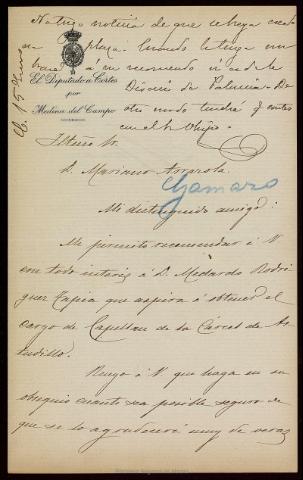 No tengo noticia de que se haya creado
esa plaza. Cuando la tenga
El Diputado a Cortes
por
Medina del Campo
Diócesis de Palencia. De
otro modo tendrá V. q.
con el Sr. Obispo.
C. 15 Enero
Iltmo. Sr.
D. Mariano Arrazola.
Gamazo
Mi distinguido amigo:
Me permito recomendar á V.
con todo interés á D. Medardo Rodrí
guez Tapia que aspira á obtener el
cargo de Capellan de la Cárcel de As
tudillo.
Ruego á V. que haga en su
obsequio cuanto sea posible seguro de
que se lo agradecerá muy de veras